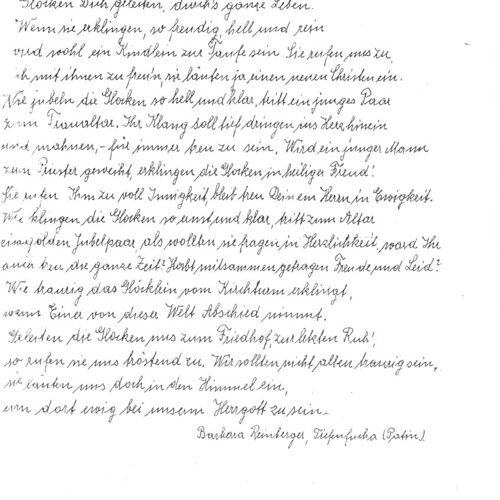 Glocken Dich geleiten, durch's ganze Leben.
Wenn sie erklingen, so freudig, hell und rein
wird wohl ein Kindlein zur Taufe sein. Sie rufen uns zu,
ich mit ihnen zu freu'n, sie läuten ja einen neuen Christen ein.
Wie jubeln die Glocken so hell und klar, tritt ein junges Paar
zum Traualtar. Ihr Klang soll tief dringen ins Herz hinein
und mahnen, - für immer treu zu sein. Wird ein junger Mann
zum Priester geweiht, erklingen die Glocken in heiliger Freud'.
Sie rufen Ihm zu voll Innigkeit, bleib treu Deinem Herrn in Ewigkeit.
Wie klingen die Glocken so ernst und klar, tritt zum Altar
ein golden Jubelpaar, als wollten sie fragen in Herzlichkeit, ward Ihr
treu die ganze Zeit? Habt mitsammen getragen Freude und Leid?
Wie traurig das Glöcklein vom Kirchturm erklingt,
wenn Einer von dieser Welt Abschied nimmt.
Geleiten die Glocken uns zum Friedhof, zur letzten Ruh',
so rufen sie uns tröstend zu. Wir sollten nicht allen traurig sein,
sie läuten uns doch in den Himmel ein,
um dort ewig bei unserm Herrgott zu sein.
Barbara Reinberger, Tiefenfucha (Patin).